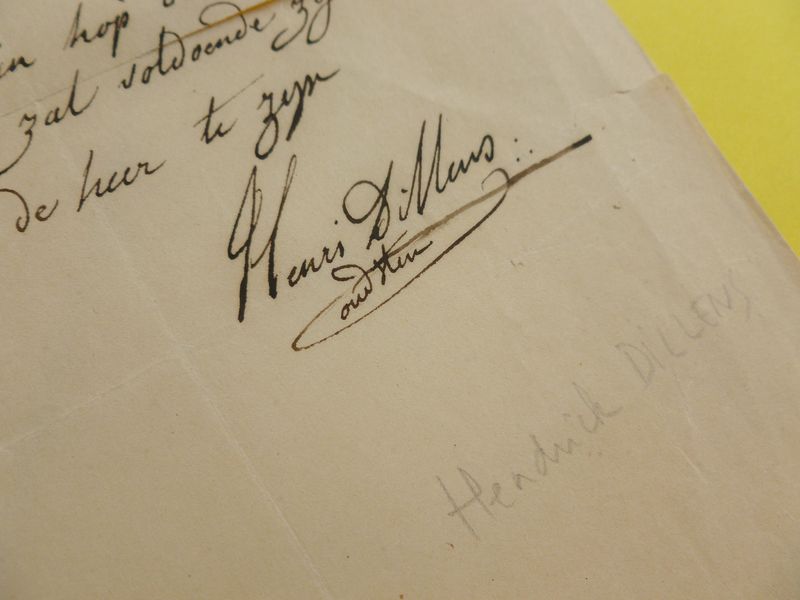 hop
zal voldoende
de heer te zyn
Henri Dillens
oudsten
Hendrick DILLENS